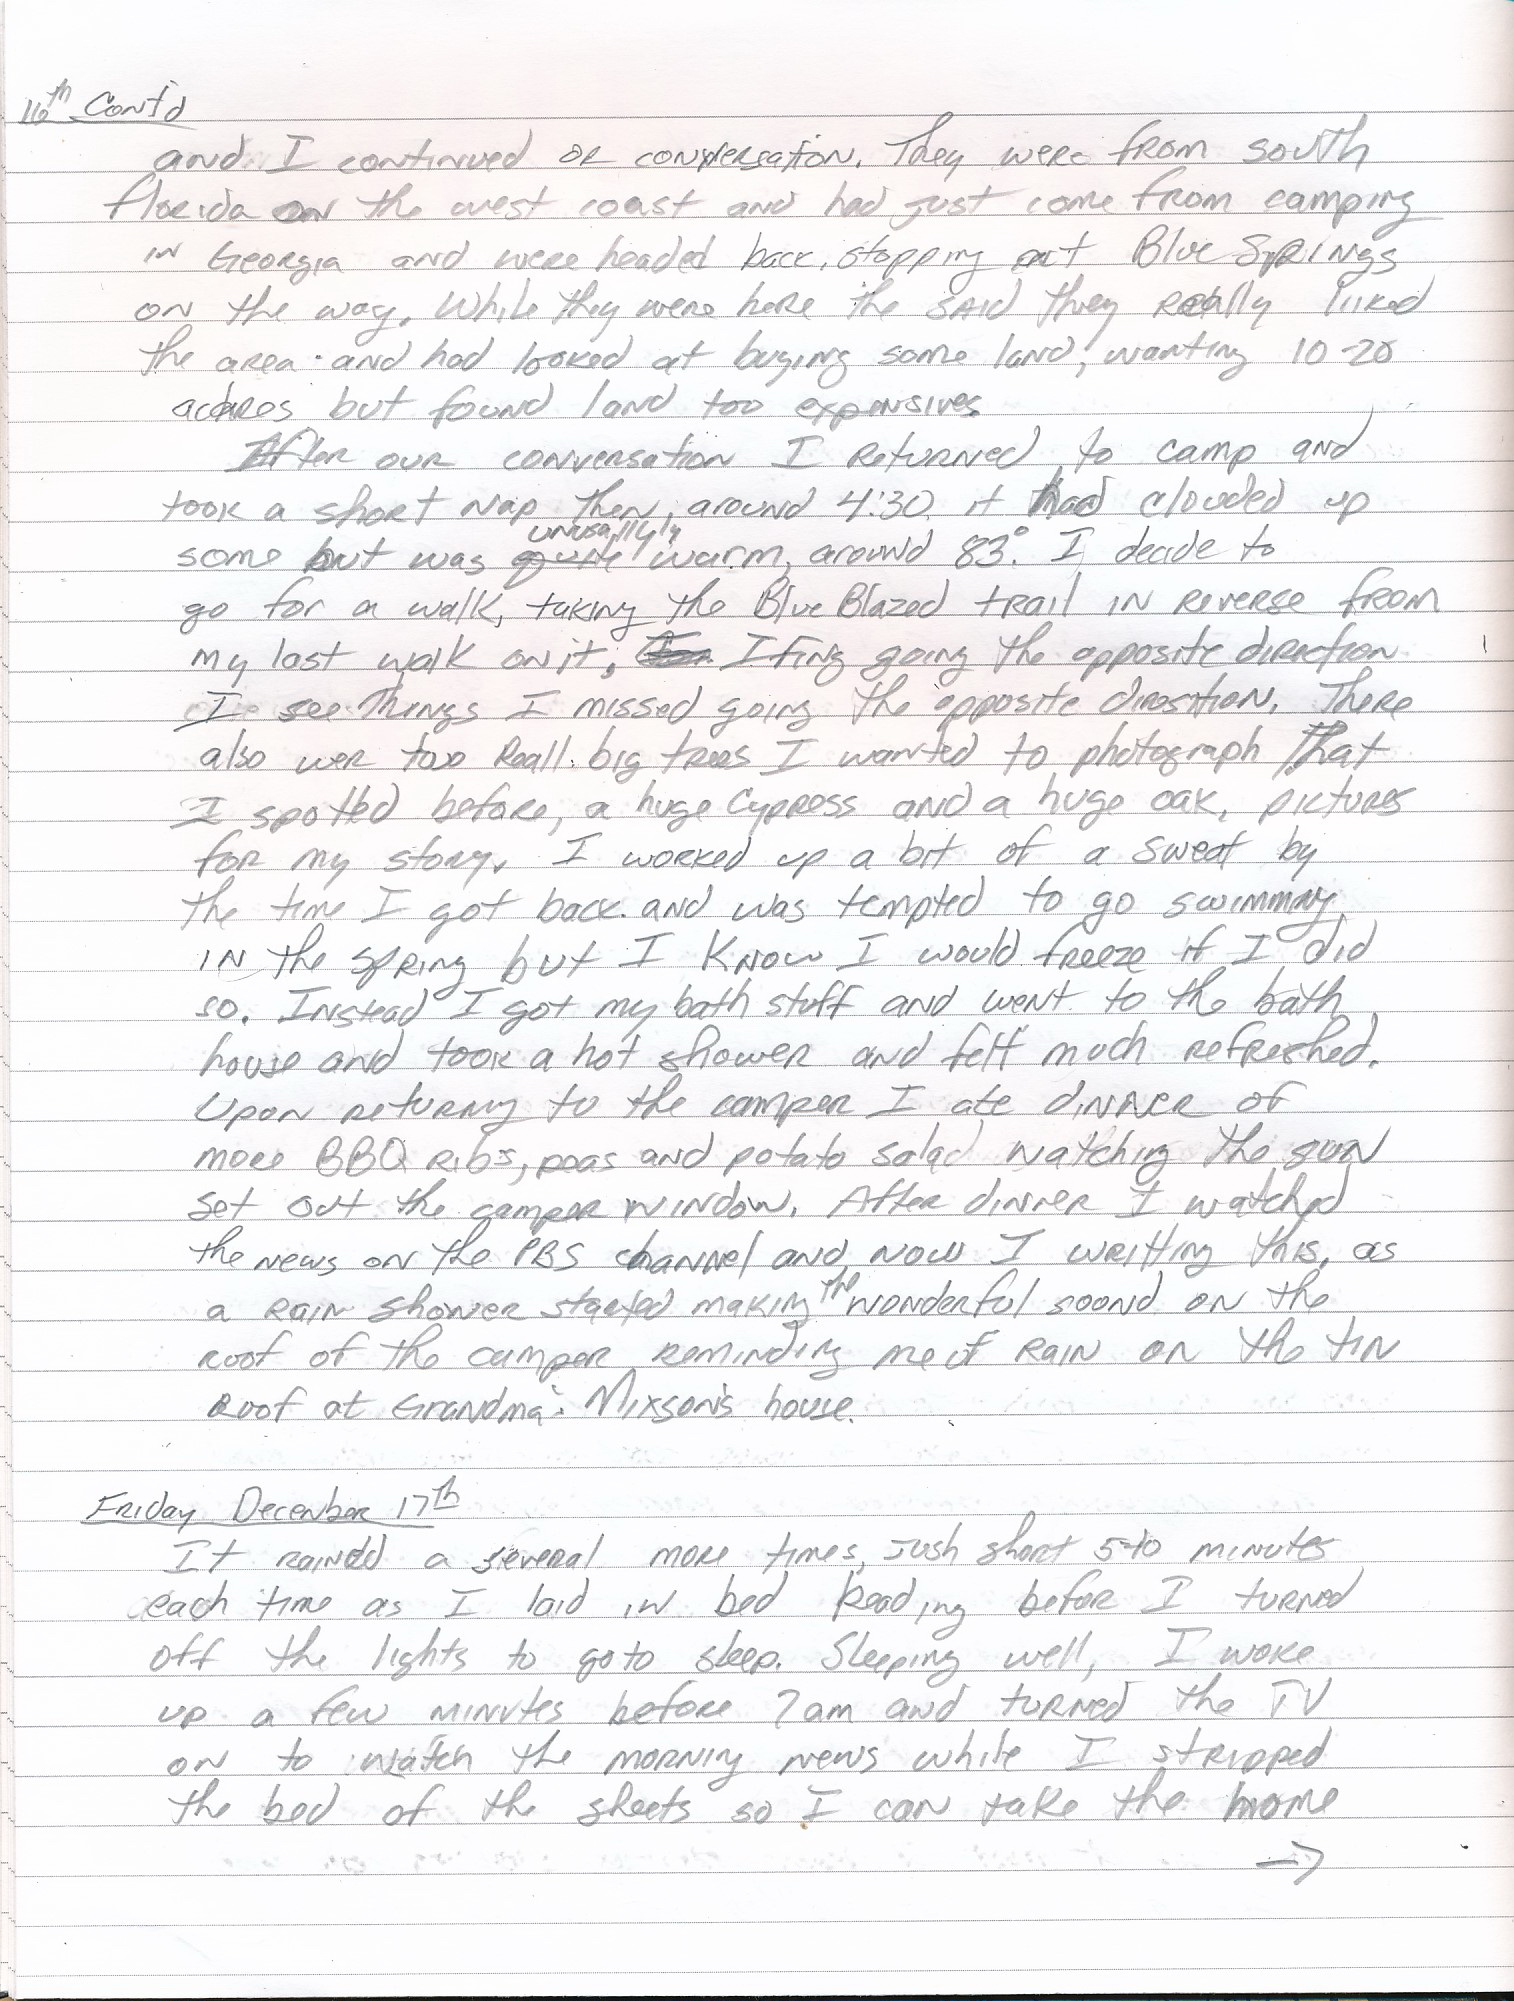 16th Cont'd
and I continued or conversation. They were from south
Florida on the west coast and had just come from camping
in Georgia and were headed back, stopping at Blue Springs
on the way. While they were here the said they really liked
the area and had looked at buying some land, wanting 10-20
acres but found land too expensives
After our conversation I returned to camp and
took a short nap then, around 4:30 it had clouded up
unusallyly
some but was quite warm, around 83°. I decide to
go for a walk, taking the Blue Blazed trail in reverse from
my last walk on it, I fing going the opposite direction
I see things I missed going the opposite direction. There
also wer two Reall big trees I wanted to photograph that
I spotted before, a huge Cypress and a huge oak, pictures
for my story. I worked up a bit of a sweat by
the time I got back and was tempted to go swimming
in the spring but I know I would freeze if I did
so. Instead I got my bath stuff and went to the bath
house and took a hot shower and felt much refreshed.
Upon returning to the camper I ate dinner of
more BBQ ribs, peas and potato salad watching the sun
set out the camper window. After dinner I watched
the news on the PBS channel and now I writting this, as
a rain shower started making the wonderful soond on the
roof of the camper reminding me of rain on the tin
roof at Grandma Mixson's house.
Friday December 17th
It rained a several more times, jush short 5-10 minutes
each time as I laid in bed reading befor I turned
off the lights to go to sleep. Sleeping well, I woke
up a few minutes before 7am and turned the TV
on to watch the morning news while I stripped
the bed of the sheets so I can take the home
→